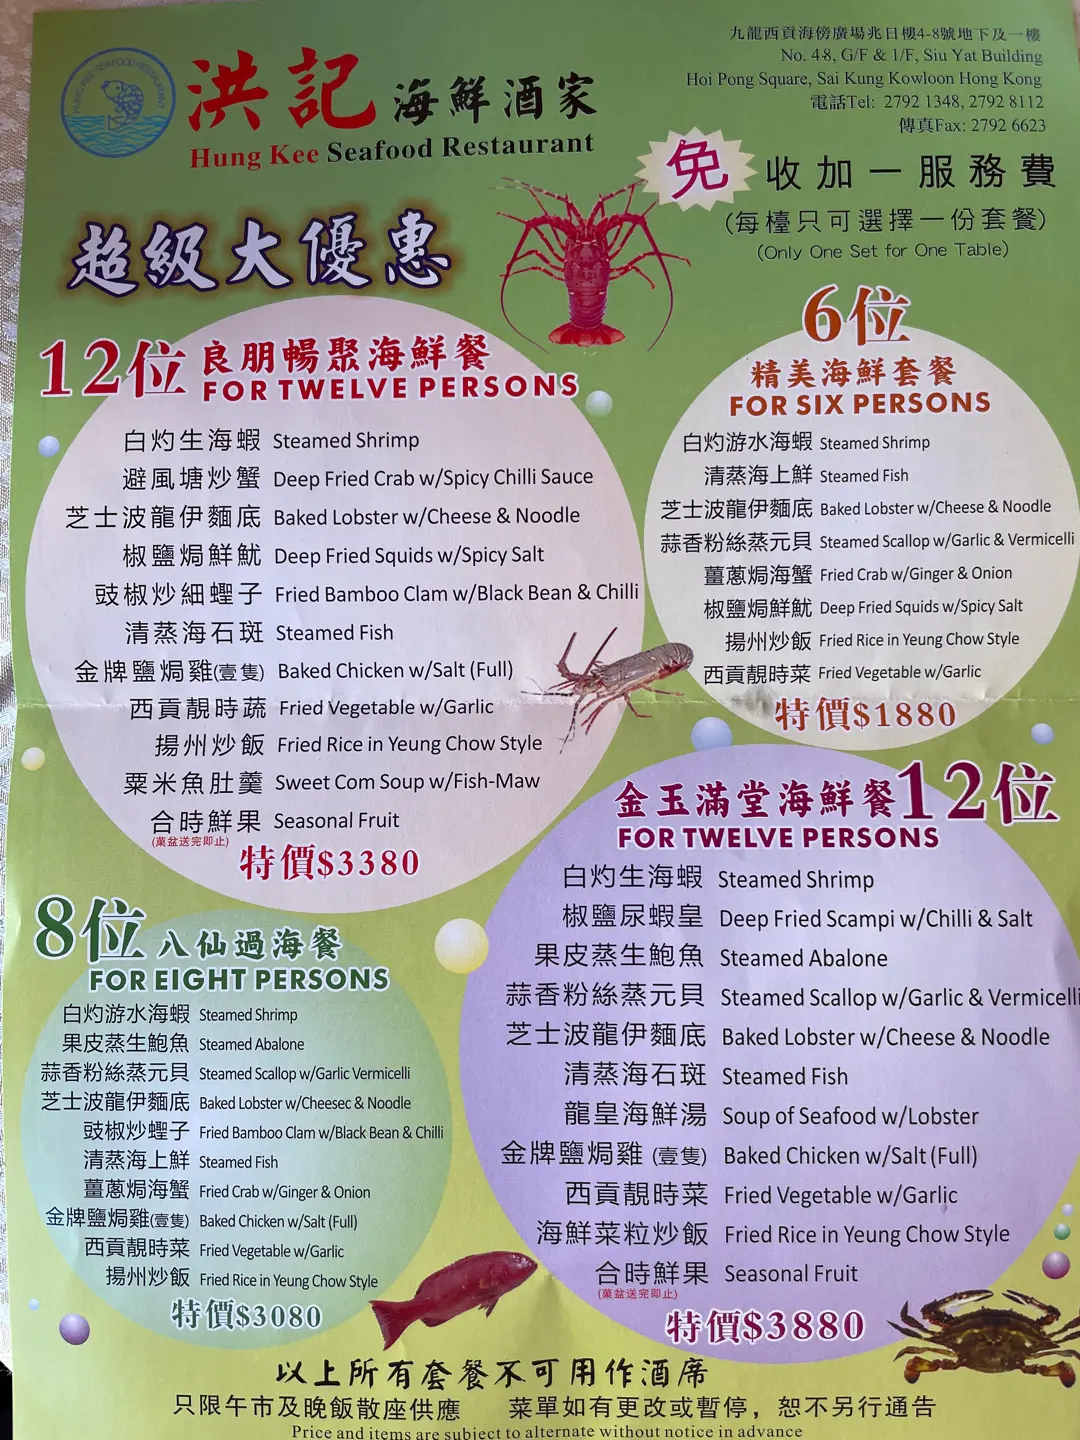 HUNG KEE SEAFOOD RESTAURANT
洪記海鮮酒家
Hung Kee Seafood Restaurant
九龍西貢海傍廣場兆日樓4-8號地下及一樓
No. 4-8, G/F & 1/F, Siu Yat Building
Hoi Pong Square, Sai Kung Kowloon Hong Kong
電話Tel: 2792 1348, 2792 8112
傳真Fax: 2792 6623
免收加一服務費
(每檯只可選擇一份套餐)
(Only One Set for One Table)
超級大優惠
12位 良朋暢聚海鮮餐
FOR TWELVE PERSONS
白灼生海蝦 Steamed Shrimp
避風塘炒蟹 Deep Fried Crab w/Spicy Chilli Sauce
芝士波龍伊麵底 Baked Lobster w/Cheese & Noodle
椒鹽焗鮮魷 Deep Fried Squids w/Spicy Salt
豉椒炒細蟶子 Fried Bamboo Clam w/Black Bean & Chilli
清蒸海石斑 Steamed Fish
金牌鹽焗雞(壹隻) Baked Chicken w/Salt (Full)
西貢靚時蔬 Fried Vegetable w/Garlic
揚州炒飯 Fried Rice in Yeung Chow Style
粟米魚肚羹 Sweet Corn Soup w/Fish-Maw
合時鮮果 Seasonal Fruit
(菓盆送完即止)
特價$3380
6位
精美海鮮套餐
FOR SIX PERSONS
白灼游水海蝦 Steamed Shrimp
清蒸海上鮮 Steamed Fish
芝士波龍伊麵底 Baked Lobster w/Cheese & Noodle
蒜香粉絲蒸元貝 Steamed Scallop w/Garlic & Vermicelli
薑蔥焗海蟹 Fried Crab w/Ginger & Onion
椒鹽焗鮮魷 Deep Fried Squids w/Spicy Salt
揚州炒飯 Fried Rice in Yeung Chow Style
西貢靚時菜 Fried Vegetable w/Garlic
特價$1880
8位 八仙過海餐
FOR EIGHT PERSONS
白灼游水海蝦 Steamed Shrimp
果皮蒸生鮑魚 Steamed Abalone
蒜香粉絲蒸元貝 Steamed Scallop w/Garlic Vermicelli
芝士波龍伊麵底 Baked Lobster w/Cheesec & Noodle
豉椒炒蟶子 Fried Bamboo Clam w/Black Bean & Chilli
清蒸海上鮮 Steamed Fish
薑蔥焗海蟹 Fried Crab w/Ginger & Onion
金牌鹽焗雞(壹隻) Baked Chicken w/Salt (Full)
西貢靚時菜 Fried Vegetable w/Garlic
揚州炒飯 Fried Rice in Yeung Chow Style
特價$3080
金玉滿堂海鮮餐12位
FOR TWELVE PERSONS
白灼生海蝦 Steamed Shrimp
椒鹽尿蝦皇 Deep Fried Scampi w/Chilli & Salt
果皮蒸生鮑魚 Steamed Abalone
蒜香粉絲蒸元貝 Steamed Scallop w/Garlic & Vermicelli
芝士波龍伊麵底 Baked Lobster w/Cheese & Noodle
清蒸海石斑 Steamed Fish
龍皇海鮮湯 Soup of Seafood w/Lobster
金牌鹽焗雞(壹隻) Baked Chicken w/Salt (Full)
西貢靚時菜 Fried Vegetable w/Garlic
海鮮菜粒炒飯 Fried Rice in Yeung Chow Style
合時鮮果 Seasonal Fruit
(菓盆送完即止)
特價$3880
以上所有套餐不可用作酒席
只限午市及晚飯散座供應 菜單如有更改或暫停，恕不另行通告
Price and items are subject to alternate without notice in advance